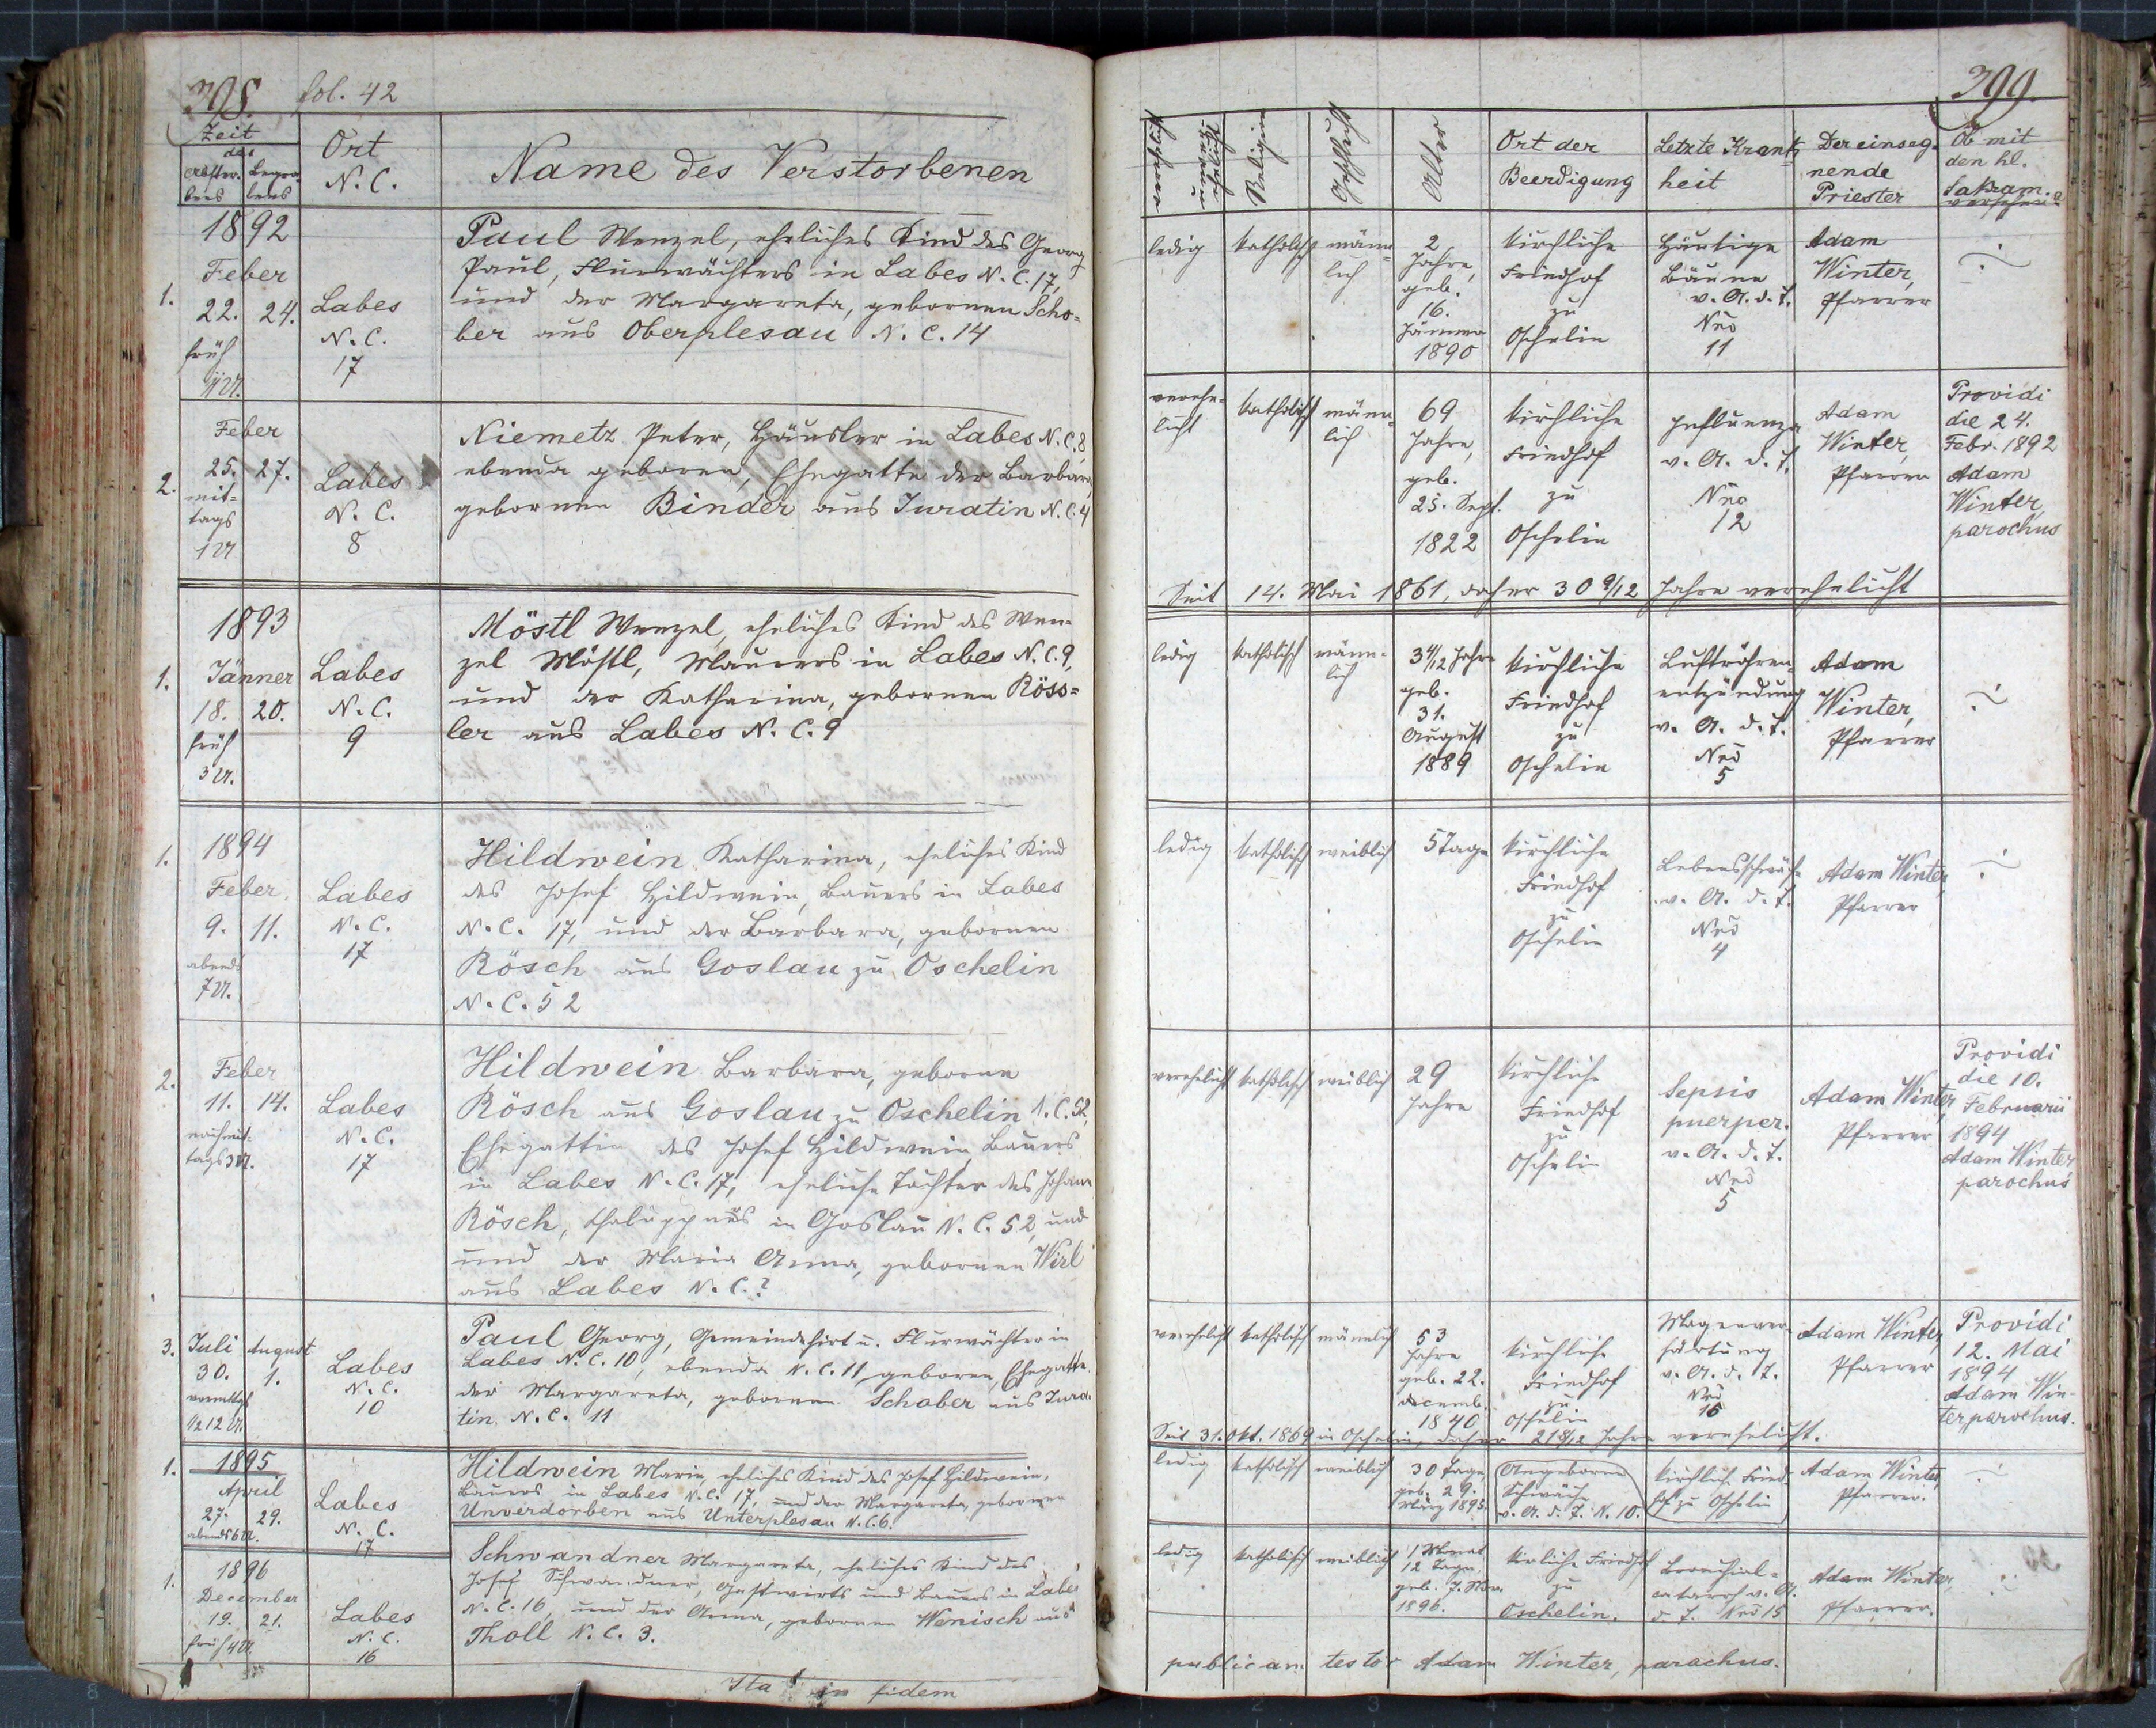 398. fol. 42
Zeit
des
Erster- Begra-
bens bens
Ort
N. C.
Name des Verstorbenen
1892
Feber
1.
22. 24.
früh
Labes
N. C.
17
Paul Wenzel, eheliches Kind des Georg
Paul, Flurwächters in Labes N. C. 17,
und der Margareta, gebornen Scho=
ber aus Oberplesau N. C. 14
Feber
2.
25. 27.
mit=
tags
1 U
Labes
N. C.
8
Niemetz Peter, Häusler in Labes N. C. 8,
ebenda geboren, Ehegatte der Barbara,
gebornen Binder aus Juratin N. C. 4
1893
1.
Jänner
18. 20.
früh
3 U.
Labes
N. C.
9
Möstl Wenzel, eheliches Kind des Wen-
zel Möstl, Maurers in Labes N. C. 9,
und der Katharina, gebornen Röss=
ler aus Labes N. C. 9
1.
1894
Feber
9. 11.
abends
7 U.
Labes
N. C.
17
Hildwein Katharina, eheliches Kind
des Josef Hildwein, Bauers in Labes
N. C. 17, und der Barbara, gebornen
Rösch aus Goslau zu Oschelin
N. C. 52
2.
Feber
11. 14.
nachmit-
tags 3 U.
Labes
N. C.
17
Hildwein Barbara, geborne
Rösch aus Goslau zu Oschelin N. C. 52,
Ehegattin des Josef Hildwein, Bauers
in Labes N. C. 17, eheliche Tochter des Johann
Rösch, Chaluppners in Goslau N. C. 52, und
und der Maria Anna, gebornen Wirl
aus Labes N. C. ?
3. Juli August
30. 1.
vormittgs
1/2 12 U.
Labes
N. C.
10
Paul Georg, Gemeindehirt u. Flurwächter in
Labes N. C. 10, ebenda N. C. 11 geboren, Ehegatte
der Margareta, gebornen Schober aus Jura-
tin N. C. 11
1. 1895
April
27. 29.
abends 6 U.
Labes
N. C.
17
Hildwein Maria, eheliches Kind des Josef Hildwein,
Bauers in Labes N. C. 17, und der Margareta, gebornen
Unverdorben aus Unterplesau N. C. 6.
1. 1896
December
19. 21.
früh 4 U.
Labes
N. C.
16
Schwandner Margareta, eheliches Kind des
Josef Schwandner, Gastwirts und Bauers in Labes
N. C. 16, und der Anna, gebornen Wenisch aus
Tholl N. C. 3.
Ita in fidem
399.
verehlicht
unver-
ehelicht
Religion
Geschlecht
Alter
Ort der
Beerdigung
Letzte Krank
heit
Der einseg-
nende
Priester
Ob mit
den hl.
Sakram.
versehen?
ledig
katholisch
männ=
lich
2
Jahre,
geb.
16.
Jänner
1890
kirchliche
Friedhof
zu
Oschelin
Häutige
Bräune
v. A. d. T.
Nro
11
Adam
Winter,
Pfarrer
verehe-
licht
katholisch
männ=
lich
69
Jahre,
geb.
25. Sept.
1822
kirchliche
Friedhof
zu
Oschelin
Influenza
v. A. d. T.
Nro
12
Adam
Winter,
Pfarrer
Providi
die 24.
Febr. 1892
Adam
Winter,
parochus
Seit 14. Mai 1861, daher 30 9/12 Jahre verehelicht
ledig
katholisch
männ-
lich
3 4/12 Jahre
geb.
31.
August
1889
kirchliche
Friedhof
zu
Oschelin
Luftröhren-
entzündung
v. A. d. T.
Nro
5
Adam
Winter,
Pfarrer
ledig
katholisch
weiblich
5 Tage
kirchliche
Friedhof
zu
Oschelin
Lebensschwäche
v. A. d. T.
Nro
4
Adam Winter,
Pfarrer
verehelicht
katholisch
weiblich
29
Jahre
kirchliche
Friedhof
zu
Oschelin
Sepsis
puerper.
v. A. d. T.
Nro
5
Adam Winter,
Pfarrer
Providi
die 10.
Februarii
1894
Adam Winter,
parochus
verehelicht
katholisch
männlich
53
Jahre
geb. 22.
Decemb.
1840
kirchliche
Friedhof
zu
Oschelin
Magenver-
härtung
v. A. d. T.
Nro
Adam Winter,
Pfarrer
Providi
12. Mai
1894
Adam Win-
ter parochus.
Seit 31. Okt. 1869 in Oschelin, daher Jahre verehelicht.
ledig
katholisch
weiblich
30 Tage,
geb. 29.
März 1895.
Angeborne
Schwäche
v. A. d. T. N. 10.
kirchlich. Fried
hof zu Oschelin
Adam Winter,
Pfarrer.
ledig
katholisch
weiblich
1 Monat,
12 Tage,
geb. 7. Nov.
1896.
kirchliche Friedhof
zu
Oschelin.
Bronchial=
catarrh v. A.
d. T. Nro 15
Adam Winter,
Pfarrer.
publicam testor Adam Winter, parochus.